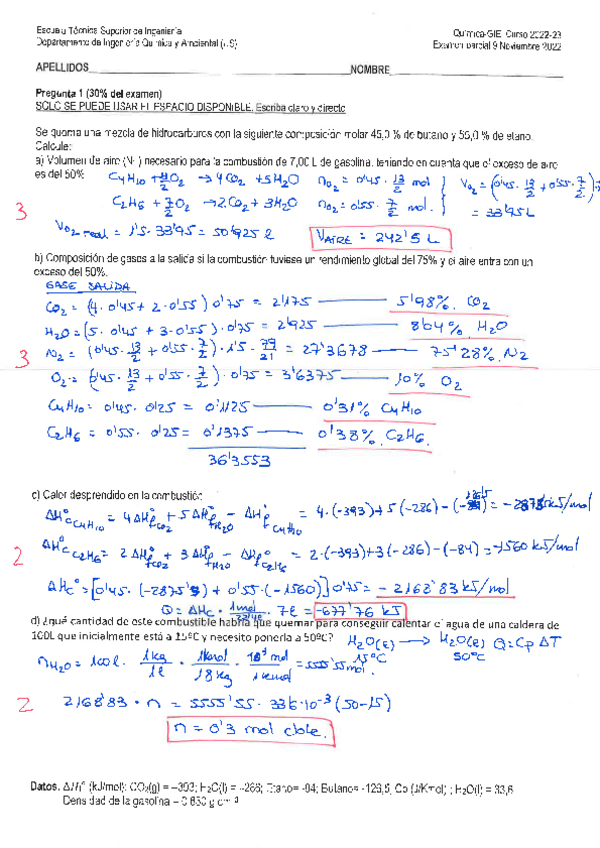 Escuela Técnica Superior de Ingeniería Química-GIE Curso 2022-23
Departamento de Ingeniería Química y Ambiental (US) Examen parcial 9 Noviembre 2022
APELLIDOS NOMBRE
Pregunta 1 (30% del examen)
SOLO SE PUEDE USAR EL ESPACIO DISPONIBLE. Escriba claro y directo
Se quema una mezcla de hidrocarburos con la siguiente composición molar 45,0 % de butano y 55,0 % de etano.
Calcule:
a) Volumen de aire (N) necesario para la combustión de 7,00 L de gasolina, teniendo en cuenta que el exceso de aire
es del 50%
C4H10 + 13/2 O2 → 4CO2 + 5H2O nO2 = 0'45 · 13/2 mol
C2H6 + 7/2 O2 → 2CO2 + 3H2O nO2 = 0'55 · 7/2 mol.
VO2 = (0'45 · 13/2 + 0'55 · 7/2) ·
= 33'95 L
3
VO2 real = 1'5 · 33'95 = 50'925 l VAIRE = 242'5 L
b) Composición de gases a la salida si la combustión tuviese un rendimiento global del 75% y el aire entra con un
exceso del 50%.
GASES SALIDA
CO2 = (4 · 0'45 + 2 · 0'55) 0'75 = 2'175 — 5'98% CO2
H2O = (5 · 0'45 + 3 · 0'55) · 0'75 = 2'925 — 8'04% H2O
3
N2 = (0'45 · 13/2 + 0'55 · 7/2) · 1'5 · 79/21 = 27'3678 — 75'28% N2
O2 = (0'45 · 13/2 + 0'55 · 7/2) · 0'75 = 3'6375 — 10% O2
C4H10 = 0'45 · 0'25 = 0'1125 — 0'31% C4H10
C2H6 = 0'55 · 0'25 = 0'1375 — 0'38% C2H6.
36'3553
c) Calor desprendido en la combustión
ΔH°c C4H10 = 4ΔH°f CO2 + 5ΔH°f H2O - ΔH°f C4H10 = 4 · (-393) + 5(-286) - (-126'5) = -2875'5 kJ/mol
2
ΔH°c C2H6 = 2ΔH°f CO2 + 3ΔH°f H2O - ΔH°f C2H6 = 2 · (-393) + 3(-286) - (-84) = -1560 kJ/mol
ΔHc° = [0'45 · (-2875'5) + 0'55 · (-1560)] 0'75 = -2168'83 kJ/mol
Q = ΔHc · 1mol/22'4l · 7l = -677'76 kJ
d) ¿Qué cantidad de este combustible habría que quemar para conseguir calentar el agua de una caldera de
100L que inicialmente está a 15ºC y necesito ponerla a 50ºC? H2O(l) → H2O(l) Q = Cp ΔT
15ºC 50ºC
nH2O = 100l · 1kg/1l · 1kmol/18kg · 10³ mol/1kmol = 5555'55 mol
2
2168'83 · n = 5555'55 · 33'6 · 10⁻³ (50-15)
n = 0'3 mol cble.
Datos. ΔHf° (kJ/mol): CO2(g) = -393; H2O(l) = -286; Etano= -84; Butano= -126,5, Cp (J/Kmol) ; H2O(l) = 33,6
Densidad de la gasolina = 0.850 g cm⁻³